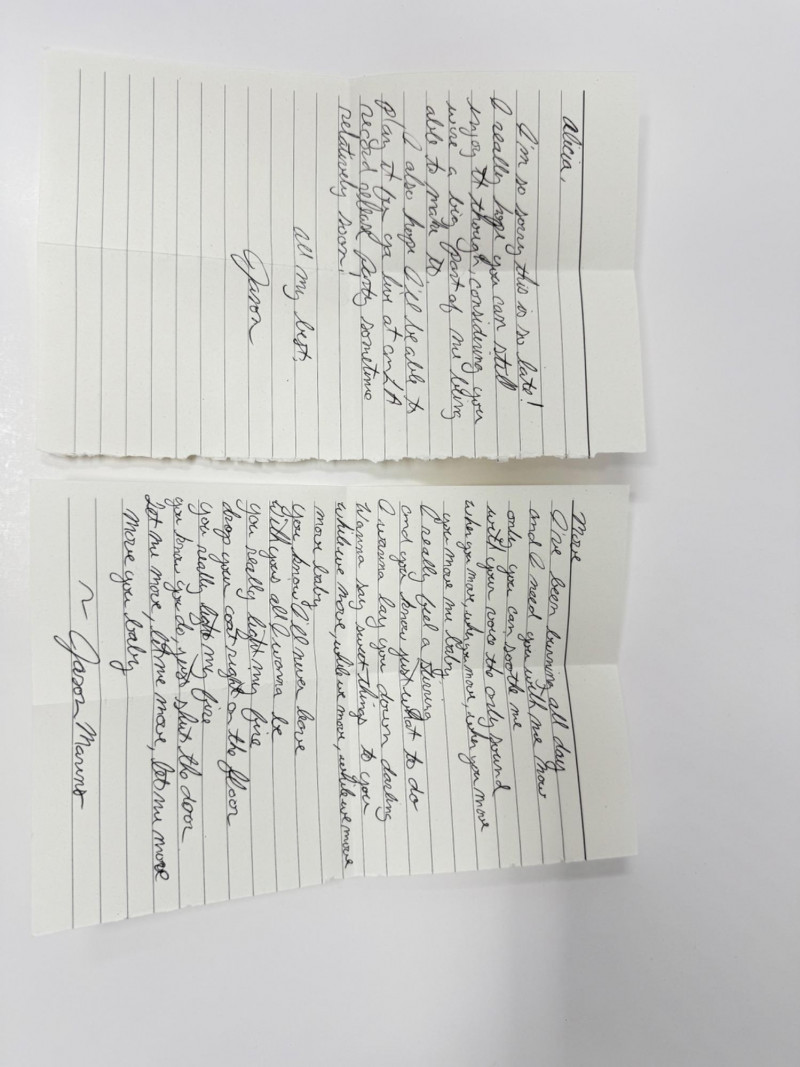 Alicia,
I'm so sorry this is so late!
I really hope you can still
enjoy it though, considering you
were a big part of me being
able to make it.
I also hope I'll be able to
play it for ya live at an LA
record release party sometime
relatively soon!
all my best,
Jason
Move
I've been burning all day
and I need you with me now
only you can soothe me
with your voice the only sound
when you move, when you move, when you move
you move me baby
I really feel a stirring
and you know just what to do
I wanna lay you down darling
Wanna say sweet things to you
while we move, while we move, while we move
move baby
You know I'll never leave
with you's all I wanna be
you really light my fire
drop your coat right on the floor
you really light my fire
you know you do, just shut the door
let me move, let me move, let me move
Move you baby
~ Jason